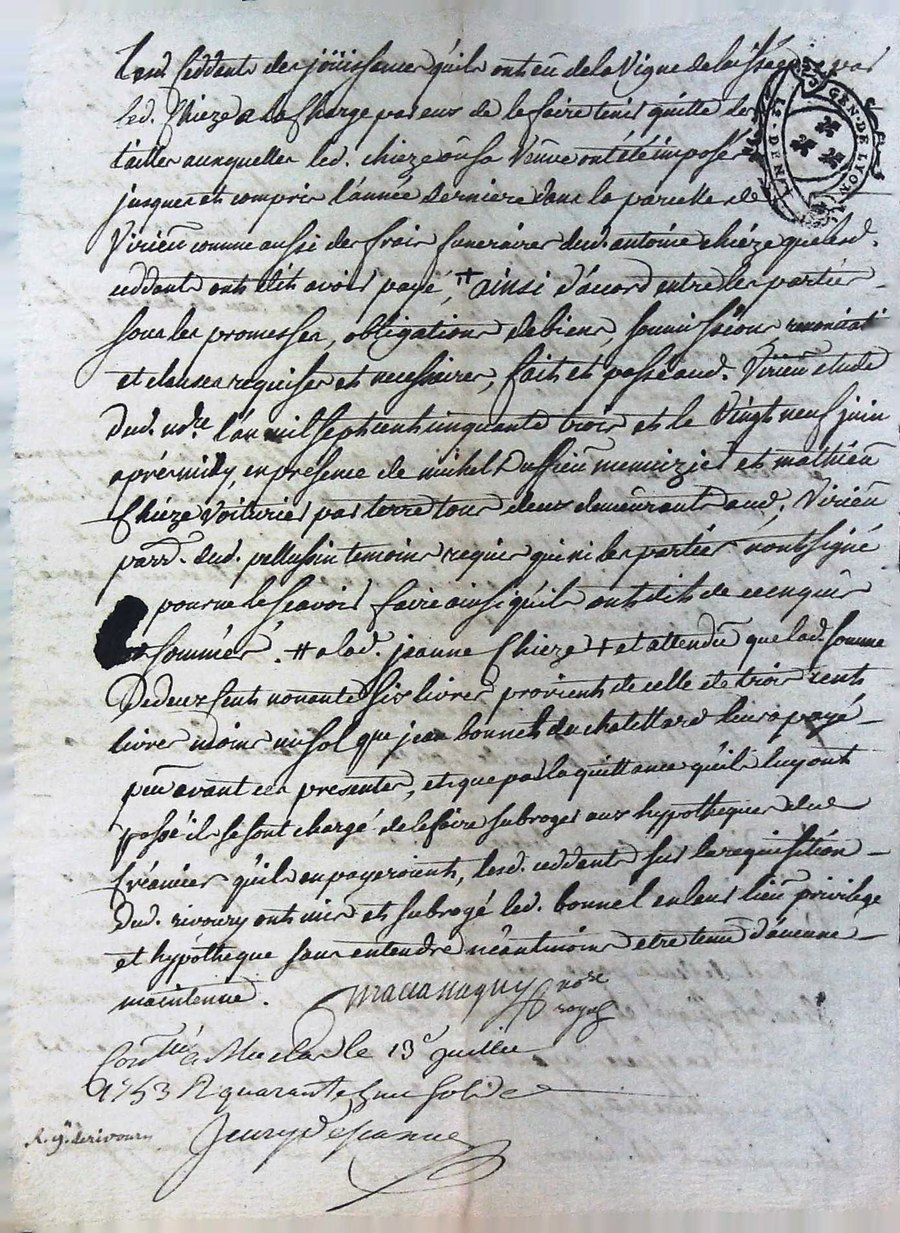 Lesd. ceddants des joüissances quils ont eü de la Vigne delaissée par
led. Chieze a la Charge par eux de le faire tenir quitte des
tailles auxquelles led. chieze ou sa Veuve ont été imposés
jusques et compris l'année derniere dans la parcelle de
Virieu comme aussi des frais funeraires dud. antoine chieze que lesd.
ceddants ont dit avoir payé, # ainsi d'acord entre les parties
sous les promesses, obligations de biens, soumissions renonciati
et clauses requises et necessaires, fait et passé aud. Virieu etude
dud. ndre. l'an mil sept cent cinquante trois et le Vingt neuf juin
aprés midy, en presence de michel Duffieu menuizier et mathieu
Chieze Voiturier par terre tous deux demeurants aud. Virieu
parr. dud. pellussin temoins requis qui ni les parties n'ont signé
pour ne le sçavoir faire ainsi quils ont dit de ce enquis
et sommés. # a lad. jeanne Chieze + et attendu que lad. somme
De deux cents nonante six livres provient de celle de trois cents
livres moins un sol que jean bonnel du chatellard leur a payé
peu avant ces presentes, et que par la quittance quils luy ont
passé ils se sont chargé de le faire subroger aux hypotheques du
créancier quils en payeroient, lesd. ceddants sur la requisition
dud. rivoury ont mis et subrogé led. bonnel en leur lieu privilege
et hypotheque sans entendre néantmoins etre tenu d'aucune
maintenue.
nore
royal
Contllé a Maclas le 13e juillet
1753 R quarante sols
R. g. de rivoury
GEN. DE LYON